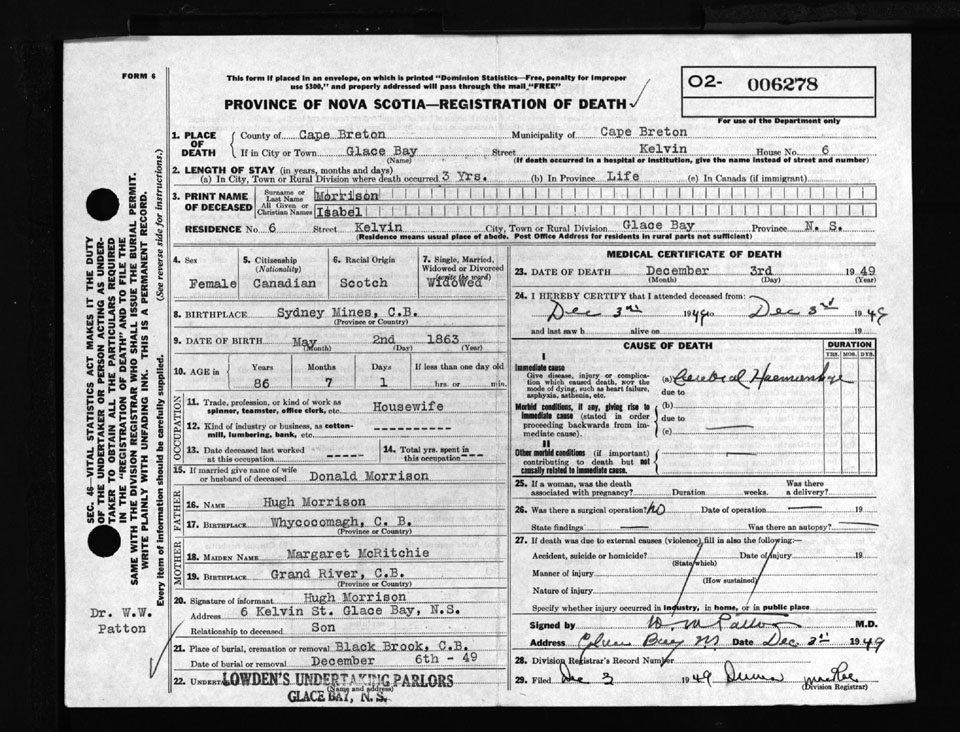 FORM 6
This form if placed in an envelope, on which is printed "Dominion Statistics—Free, penalty for improper
use $300," and properly addressed will pass through the mail "FREE"
PROVINCE OF NOVA SCOTIA—REGISTRATION OF DEATH
O2- 006278
For use of the Department only
1. PLACE OF DEATH
County of Cape Breton Municipality of Cape Breton
If in City or Town Glace Bay Street Kelvin House No. 6
(Name) (If death occurred in a hospital or institution, give the name instead of street and number)
2. LENGTH OF STAY (in years, months and days)
(a) In City, Town or Rural Division where death occurred 3 Yrs. (b) In Province Life (c) In Canada (if immigrant)
3. PRINT NAME OF DECEASED
Surname or Last Name Morrison
All Given or Christian Names Isabel
RESIDENCE No. 6 Street Kelvin City, Town or Rural Division Glace Bay Province N. S.
(Residence means usual place of abode. Post Office Address for residents in rural parts not sufficient)
4. Sex
Female
5. Citizenship
(Nationality)
Canadian
6. Racial Origin
Scotch
7. Single, Married,
Widowed or Divorced
(write the word)
Widowed
8. BIRTHPLACE Sydney Mines, C.B.
(Province or Country)
9. DATE OF BIRTH May 2nd 1863
(Month) (Day) (Year)
10. AGE in Years Months Days If less than one day old
86 7 1 hrs. or min.
OCCUPATION
11. Trade, profession, or kind of work as
spinner, teamster, office clerk, etc. Housewife
12. Kind of industry or business, as cotton-
mill, lumbering, bank, etc.
13. Date deceased last worked
at this occupation
14. Total yrs. spent in
this occupation
15. If married give name of wife
or husband of deceased Donald Morrison
FATHER
16. NAME Hugh Morrison
17. BIRTHPLACE Whycocomagh, C. B.
(Province or Country)
MOTHER
18. MAIDEN NAME Margaret McRitchie
19. BIRTHPLACE Grand River, C.B.
(Province or Country)
20. Signature of informant Hugh Morrison
Address 6 Kelvin St. Glace Bay, N.S.
Relationship to deceased Son
21. Place of burial, cremation or removal Black Brook, C.B.
Date of burial or removal December 6th - 49
22. UNDERTAKER LOWDEN'S UNDERTAKING PARLORS
(Name and address)
GLACE BAY, N. S.
MEDICAL CERTIFICATE OF DEATH
23. DATE OF DEATH December 3rd 1949
(Month) (Day) (Year)
24. I HEREBY CERTIFY that I attended deceased from:
Dec 3rd 1949 to Dec 3rd 1949
and last saw h alive on 19
CAUSE OF DEATH
DURATION
YRS. MOS. DYS.
I
Immediate cause
Give disease, injury or complica-
tion which caused death, NOT the
mode of dying, such as heart failure,
asphyxia, asthenia, etc.
(a) Cerebral Haemorrhage
due to
Morbid conditions, if any, giving rise to
immediate cause (stated in order
proceeding backwards from im-
mediate cause).
(b)
due to
(c)
II
Other morbid conditions (if important)
contributing to death but not
causally related to immediate cause.
25. If a woman, was the death
associated with pregnancy? Duration weeks. Was there
a delivery?
26. Was there a surgical operation? no Date of operation 19
State findings Was there an autopsy?
27. If death was due to external causes (violence) fill in also the following:—
Accident, suicide or homicide? Date of injury 19
(State which)
Manner of injury
(How sustained)
Nature of injury
Specify whether injury occurred in industry, in home, or in public place
Signed by W. W. Patton M.D.
Address Date Dec 3rd 1949
28. Division Registrar's Record Number
29. Filed Dec 3 1949
(Division Registrar)
SEC. 46—VITAL STATISTICS ACT MAKES IT THE DUTY
OF THE UNDERTAKER OR PERSON ACTING AS UNDER-
TAKER TO OBTAIN ALL THE PARTICULARS REQUIRED
IN THE "REGISTRATION OF DEATH" AND TO FILE THE
SAME WITH THE DIVISION REGISTRAR WHO SHALL ISSUE THE BURIAL PERMIT.
WRITE PLAINLY WITH UNFADING INK. THIS IS A PERMANENT RECORD.
Every item of information should be carefully supplied. (See reverse side for instructions.)
Dr. W.W.
Patton